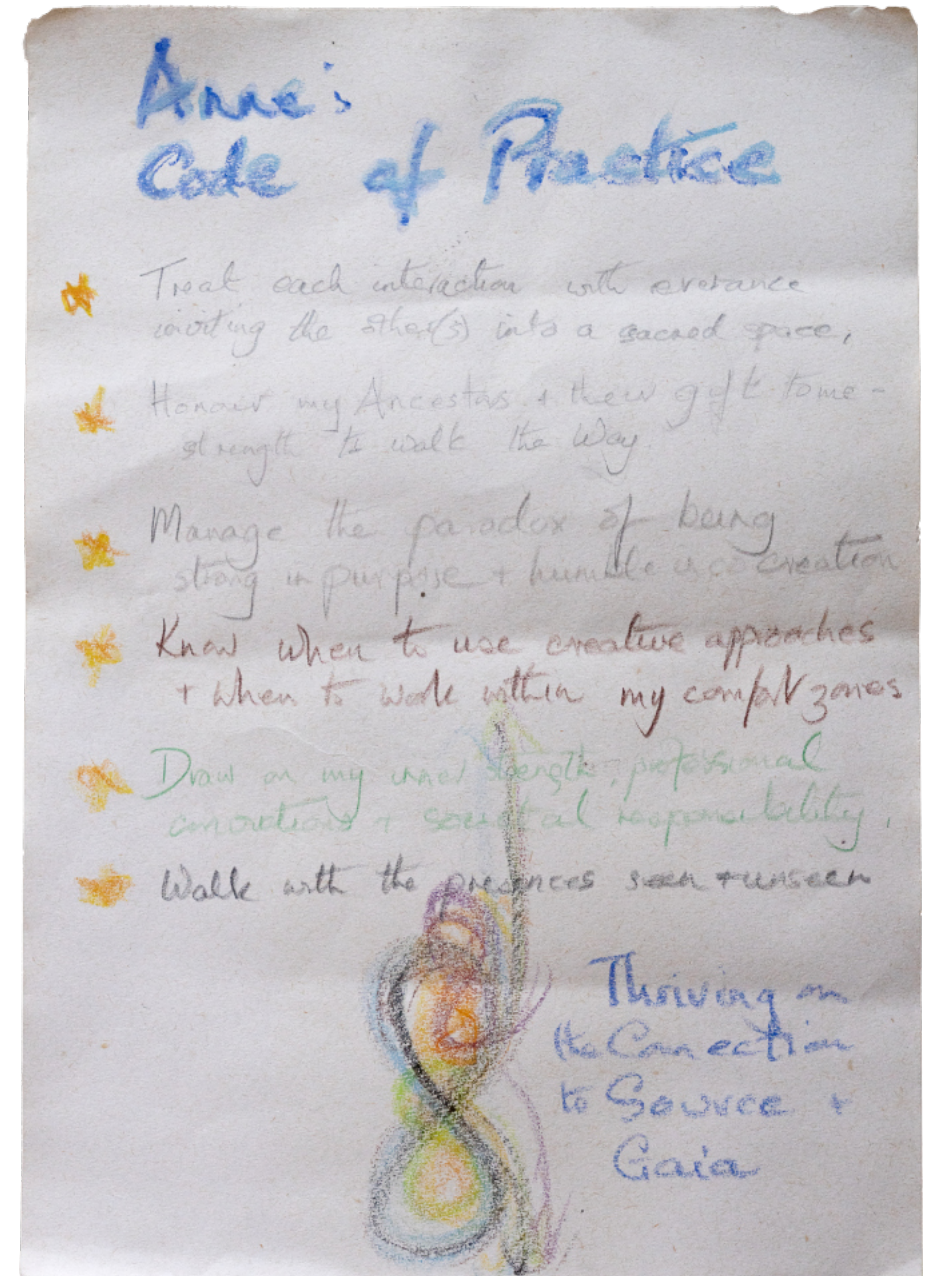 Anne's
Code of Practice
Treat each interaction with everance
inviting the other(s) into a sacred space,
Honour my Ancestors + their gift to me -
strength to walk the Way
Manage the paradox of being
strong in purpose + humble in co creation
Know when to use creative approaches
+ when to work within my comfort zones
Draw on my inner strength, professional
convictions + societal responsibility,
Walk with the presences seen + unseen
Thriving on
the Connection
to Source +
Gaia